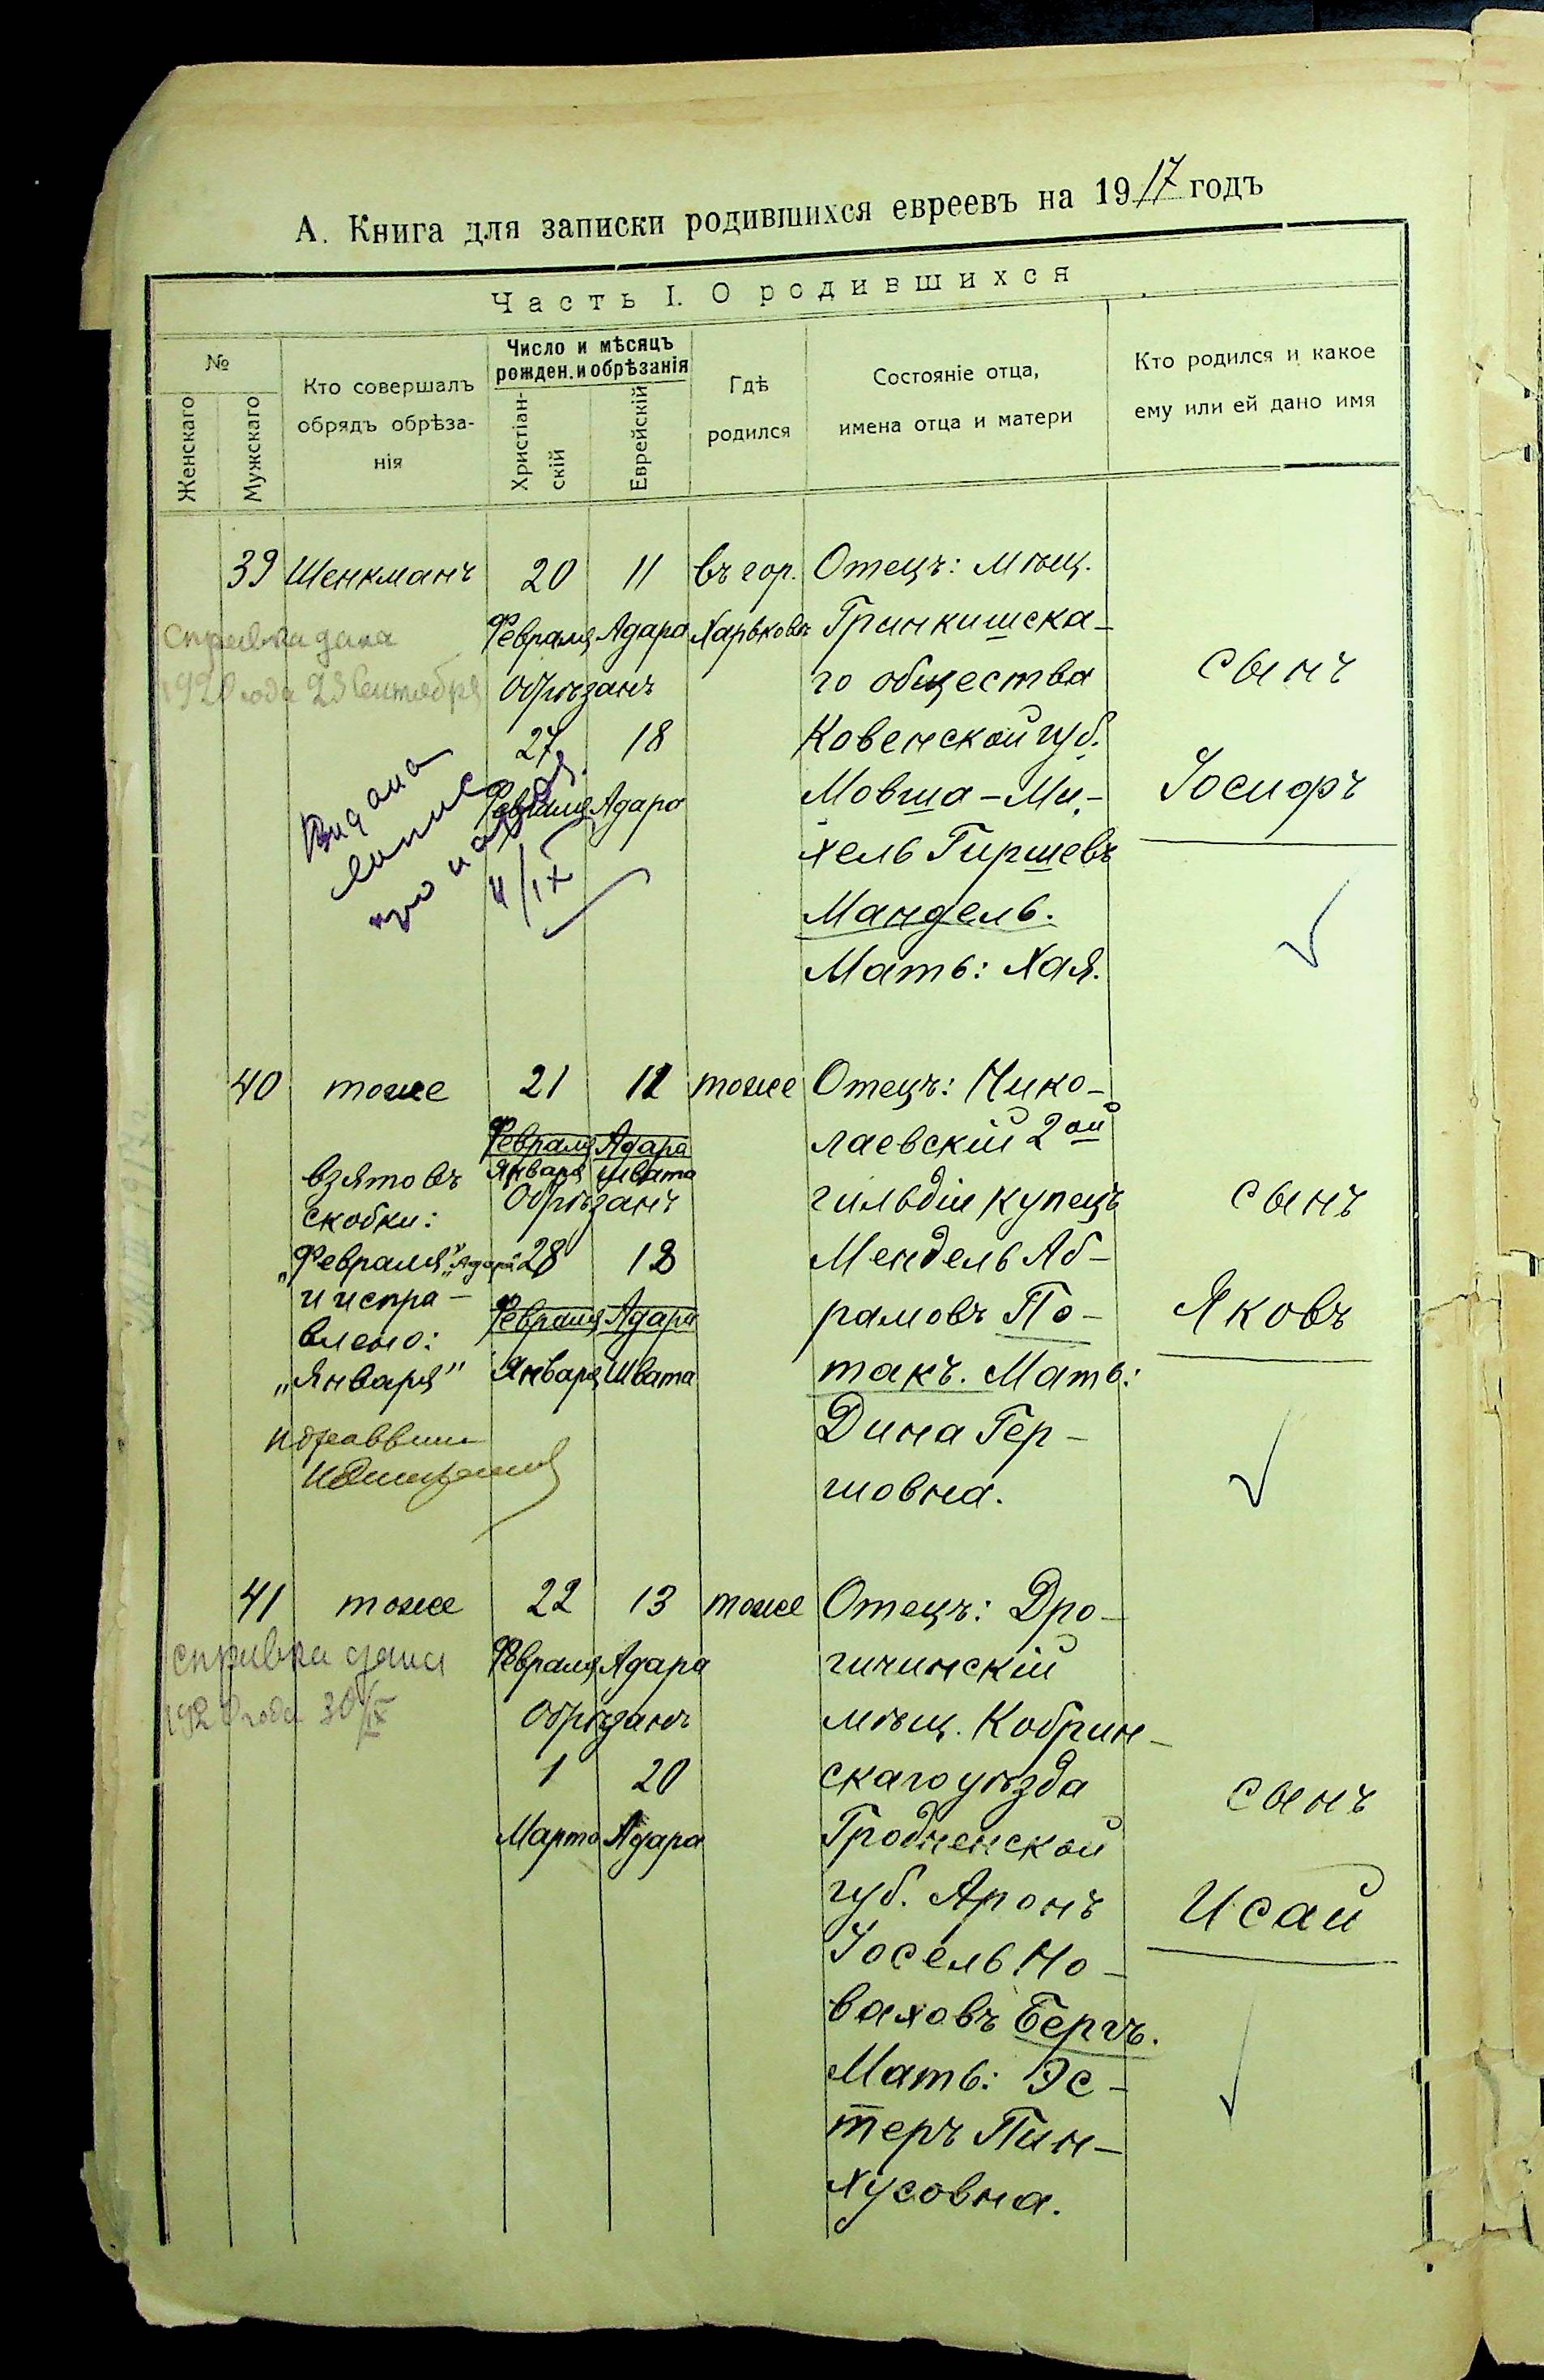 А. Книга для записки родившихся евреевъ на 1917 годъ
Часть I. О родившихся
№
Женскаго
Мужскаго
Кто совершалъ
обрядъ обрѣза-
нія
Число и мѣсяцъ
рожден. и обрѣзанія
Христіан-
скій
Еврейскій
Гдѣ
родился
Состояніе отца,
имена отца и матери
Кто родился и какое
ему или ей дано имя
39 Шенкманъ 20 11 въ гор. Отецъ: мѣщ.
Февраля Адара Харьковѣ Гринкишска-
го общества
Обрѣзанъ
27 18
Февраля Адара
Ковенской губ.
Мовша-Ми-
хель Гиршевъ
Мандель.
Мать: Хая.
сынъ
Іосифъ
справка дана
1920 года 23 Сентября
Видана
про
4/IX
40 тоже 21 12 тоже Отецъ: Нико-
Февраля Адара
Января Швата
Обрѣзанъ
28 18
Февраля Адара
Января Швата
лаевскій 2ой
гильдіи купецъ
Мендель Аб-
рамовъ По-
такъ. Мать:
Дина Гер-
шовна.
сынъ
Яковъ
взято въ
скобки:
„Февраля" „Адара"
и испра-
влено:
„Января"
41 тоже 22 13 тоже Отецъ: Дро-
Февраля Адара
Обрѣзанъ
1 20
Марта Адара
гичинскій
мѣщ. Кобрин-
скаго уѣзда
Гродненской
губ. Аронъ
Іосель Но-
ваховъ Бергъ.
Мать: Эс-
теръ Пин-
хусовна.
сынъ
Исай
справка дана
1920 года 30/IX